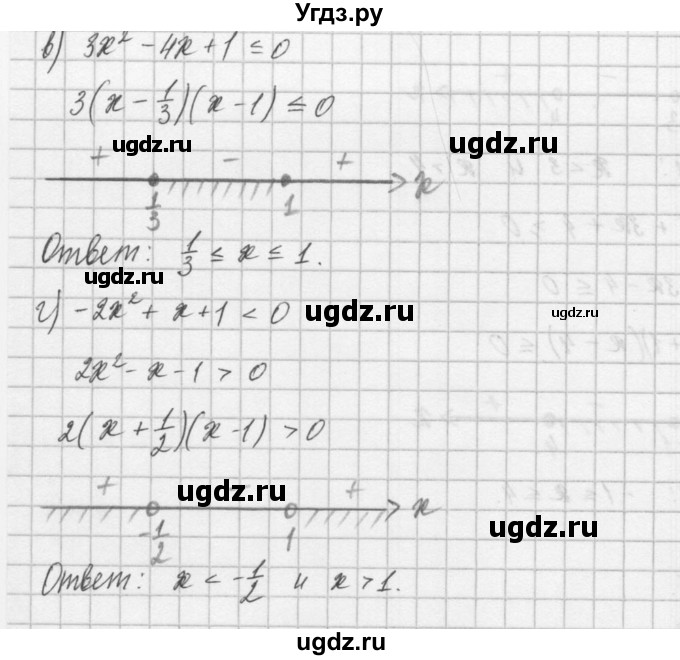 Угдз.ру
в) 3x² - 4x + 1 ≤ 0
3(x - 1/3)(x - 1) ≤ 0
ugdz.ru ugdz.ru
+ - +
1/3 1 x
Ответ: 1/3 ≤ x ≤ 1.
ugdz.ru
г) -2x² + x + 1 < 0 ugdz.ru ugdz.ru
2x² - x - 1 > 0
2(x + 1/2)(x - 1) > 0
+ ugdz.ru - +
-1/2 1 x
ugdz.ru
Ответ: x < -1/2 и x > 1.
ugdz.ru